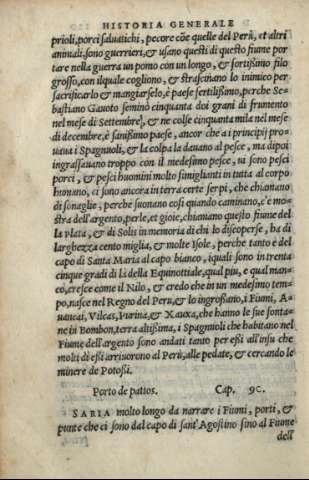 HISTORIA GENERALE
prioli, porci saluatichi, pecore cõe quelle del Perù, et altri
animali. sono guerrieri, & usano questi di questo fiume por
tare nella guerra un pomo con un longo, & fortissimo filo
grosso, con ilquale cogliono, & strascinano lo inimico per
sacrificarlo & mangiarselo, è paese fertilissimo, perche Se-
bastiano Gauoto seminò cinquanta doi grani di frumento
nel mese di Settembre, & ne colse cinquanta mila nel mese
di decembre, è sanissimo paese, ancor che a i principij pro-
uaua i Spagnuoli, & la colpa la dauano al pesce, ma dipoi
ingrassauano troppo con il medesimo pesce, ui sono pesci
porci, & pesci huomini molto simiglianti in tutta al corpo
humano, ci sono ancora in terra certe serpi, che chiamano
di sonaglie, perche suonano cosi quando caminano, c'è mo-
stra dell'argento, perle, et gioie, chiamano questo fiume del
la Plata, & di Solis in memoria di chi lo discoperse, ha di
larghezza cento miglia, & molte Isole, perche tanto è del
capo di Santa Maria al capo bianco, iquali sono in trenta
cinque gradi di là della Equinottiale, qual piu, e qual man-
co, cresce come il Nilo, & credo che in un medesimo tem-
po, nasce nel Regno del Peru, & lo ingroßano, i Fiumi, A-
uancai, Vilcas, Parina, & Xauxa, che hanno le sue fonta-
ne in Bombon, terra altißima, i Spagnuoli che habitano nel
Fiume dell'argento sono andati tanto per eßi all'insu che
molti di eßi arriuorono al Perù, alle pedate, & cercando le
minere de Potoßi.
Porto de patios. Cap. 90.
SARIA molto longo da narrare i Fiumi, porti, &
punte che ci sono dal capo di sant'Agostino sino al Fiume
dell'